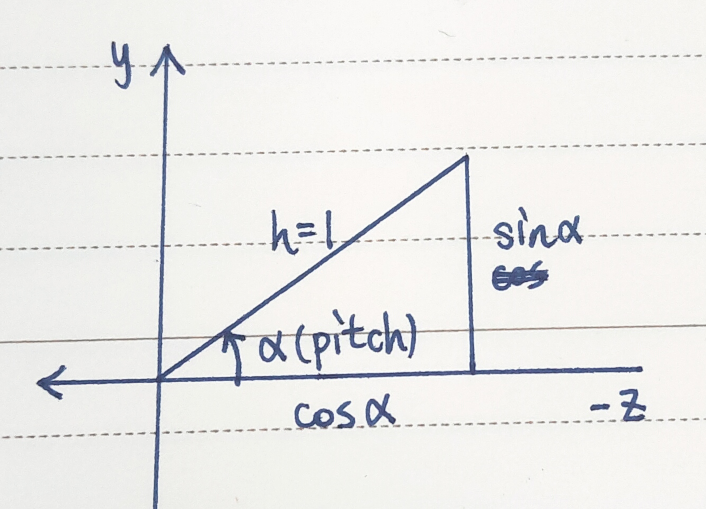 y
h=1
sinα
cos
α(pitch)
cosα
-z